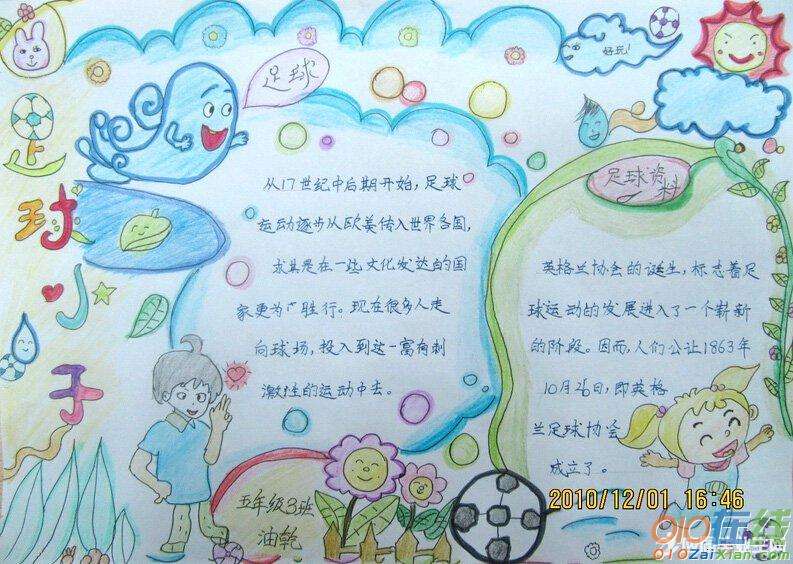 足球小子
足球
从17世纪中后期开始，足球
运动逐步从欧美传入世界各国，
尤其是在一些文化发达的国
家更为广胜行。现在很多人走
向球场，投入到这一富有刺
激性的运动中去。
好玩！
足球资料
英格兰协会的诞生，标志着足
球运动的发展进入了一个崭新
的阶段。因而，人们公让1863年
10月26日，即英格
兰足球协会
成立了。
五年级3班
油乾
2010/12/01 16:46
910在线
910ZaiXian.com